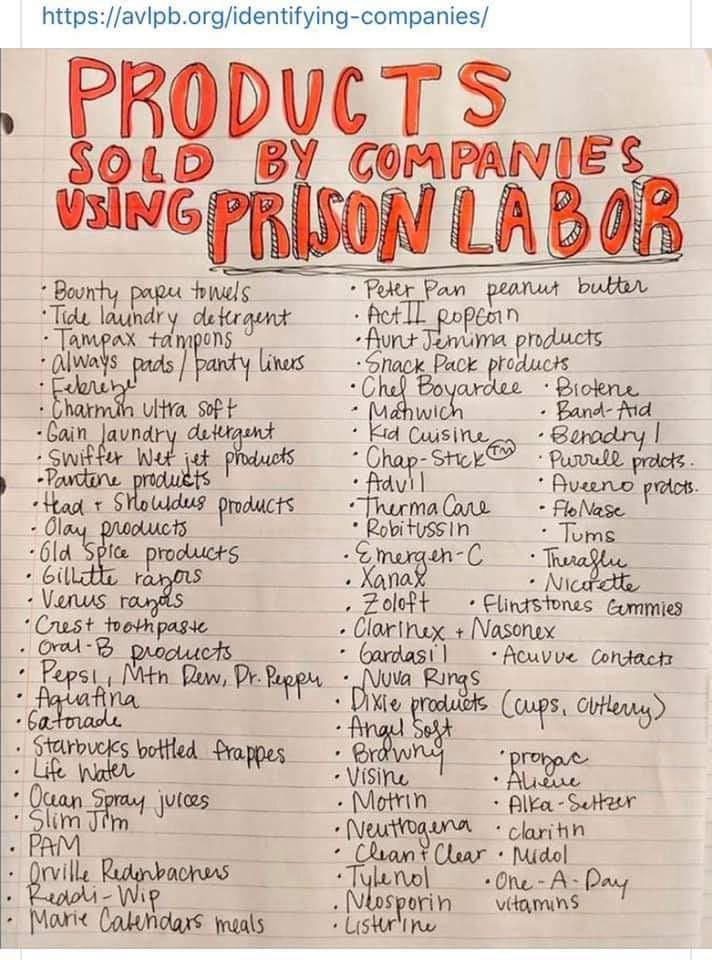 https://avlpb.org/identifying-companies/
PRODUCTS
SOLD BY COMPANIES
USING PRISON LABOR
· Bounty paper towels
· Tide laundry detergent
· Tampax tampons
· Always pads/panty liners
· Febreze
· Charmin ultra soft
· Gain laundry detergent
· Swiffer Wet jet products
· Pantene products
· Head + Shoulders products
· Olay products
· Old Spice products
· Gillette razors
· Venus razors
· Crest toothpaste
· Oral-B products
· Pepsi, Mtn Dew, Dr. Pepper
· Aquafina
· Gatorade
· Starbucks bottled frappes
· Life Water
· Ocean Spray juices
· Slim Jim
· PAM
· Orville Redenbachers
· Reddi-Wip
· Marie Calendars meals
· Peter Pan peanut butter
· Act II popcorn
· Aunt Jemima products
· Snack Pack products
· Chef Boyardee
· Manwich
· Kid Cuisine
· Chap-Stick TM
· Advil
· ThermaCare
· Robitussin
· Emergen-C
· Xanax
· Zoloft
· Clarinex + Nasonex
· Gardasil
· Nuva Rings
· Dixie products (cups, cutlerry)
· Angel Soft
· Brawny
· Visine
· Motrin
· Neutrogena
· Clean + Clear
· Tylenol
· Neosporin
· Listerine
· Biotene
· Band-Aid
· Benadryl
· Purrell prdcts.
· Aveeno prdcts.
· FloNase
· Tums
· Theraflu
· Nicorette
· Flintstones Gummies
· Acuvue contacts
· prozac
· Alieve
· Alka-Seltzer
· claritin
· Midol
· One-A-Day
vitamins